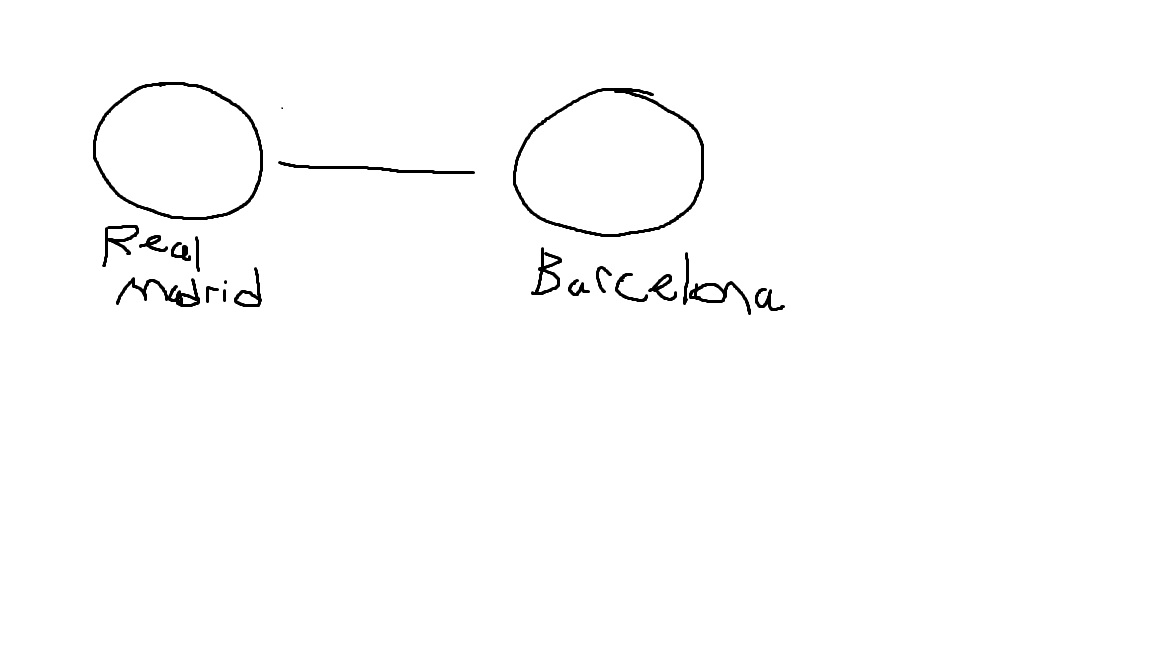 Real
Madrid
Barcelona